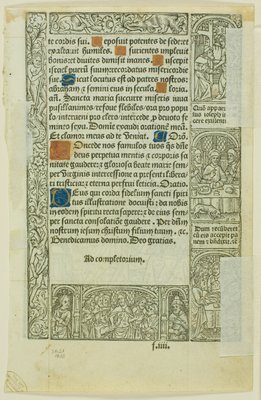 te cordis sui. Deposuit potentes de sede: et
exaltauit humiles. Esurientes impleuit
bonis: et diuites dimisit inanes. Suscepit
israel puerū suum: recordatus misericordie
sue. Sicut locutus est ad patres nostros:
abraham & semini eius in secula. Gloria.
Añ. Sancta maria succurre miseris iuua
pusillanimes refoue flebiles ora pro popu
lo interueni pro clero intercede p deuoto fe
mineo sexu. Domie exaudi orationē meā.
Et clamor meus ad te veniat. Orō.
Concede nos famulos tuos q̄s dn̄e
deus perpetua mentis & corporis sa
nitate gaudere: & gloriosa beate marie sem
per virginis intercessione a presenti libera
ri tristicia: & eterna perfrui leticia. Oratio.
Deus qui corda fidelium sancti spiri
tus illustratione docuisti: da nobis in
eodem spiritu recta sapere: & de eius sem
per sancta consolatiōe gaudere. Per dn̄m
nostrum iesum christum filium tuum. &c.
Benedicamus domino. Deo gratias.
Ad completorium.
f.iiii.
Dum recūberet
cū eis accepit pa
nem & bn̄dixit. &c